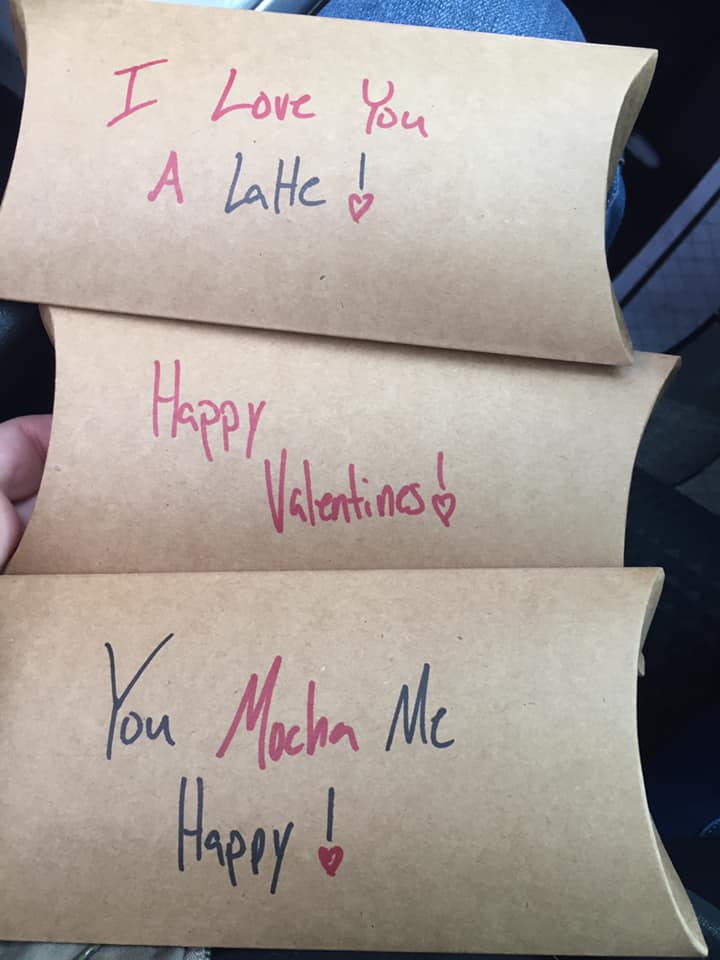 I Love You
A Latte!
Happy
Valentines!
You Mocha Me
Happy!